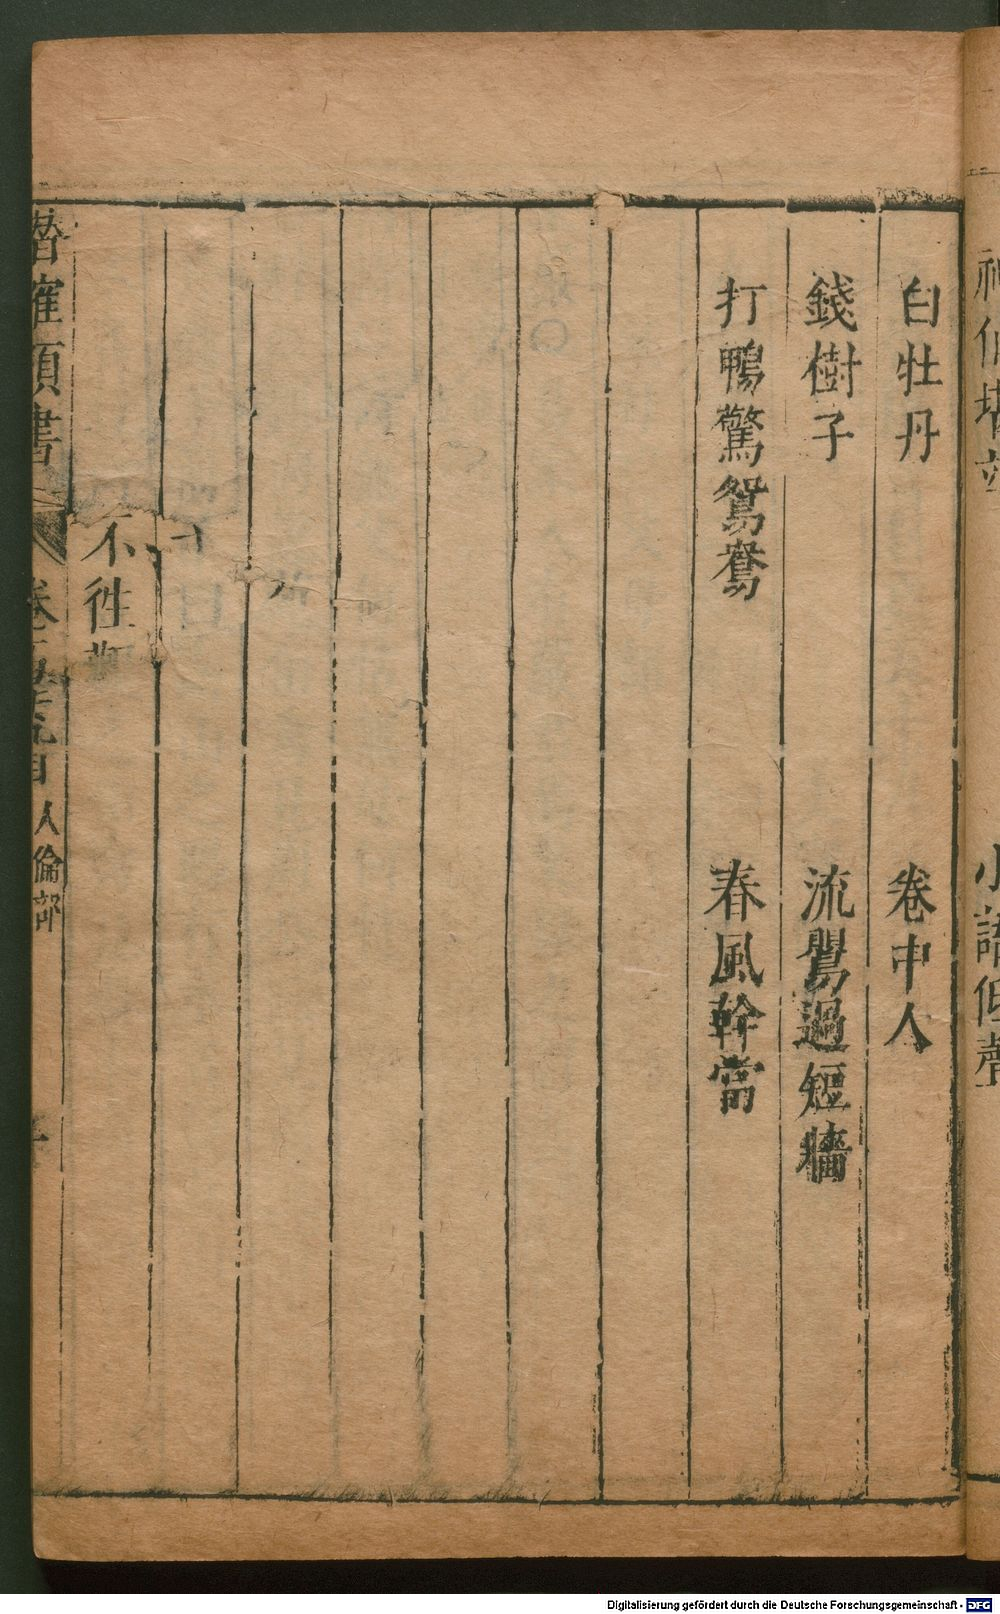 白牡丹　卷中人
錢樹子　流鶯過短牆
打鴨驚鴛鴦　春風幹當
不徃
潛確類書　卷　目　人倫部
小說低聲
Digitalisierung gefördert durch die Deutsche Forschungsgemeinschaft - DFG